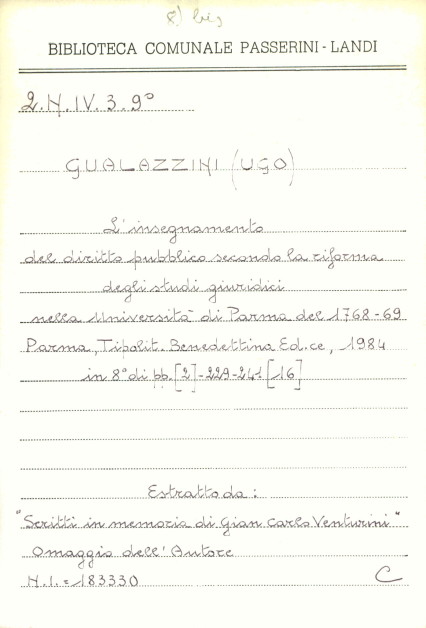 8) bis
BIBLIOTECA COMUNALE PASSERINI-LANDI
2.N.IV.3.9°
GUALAZZINI (UGO)
L'insegnamento
del diritto pubblico secondo la riforma
degli studi giuridici
nella Università di Parma del 1768-69
Parma, Tipolit. Benedettina Ed.ce, 1984
in 8° di pp. [2]-229-241 [16]
Estratto da:
"Scritti in memoria di Gian Carlo Venturini"
Omaggio dell'Autore
N.I. = 183330 C